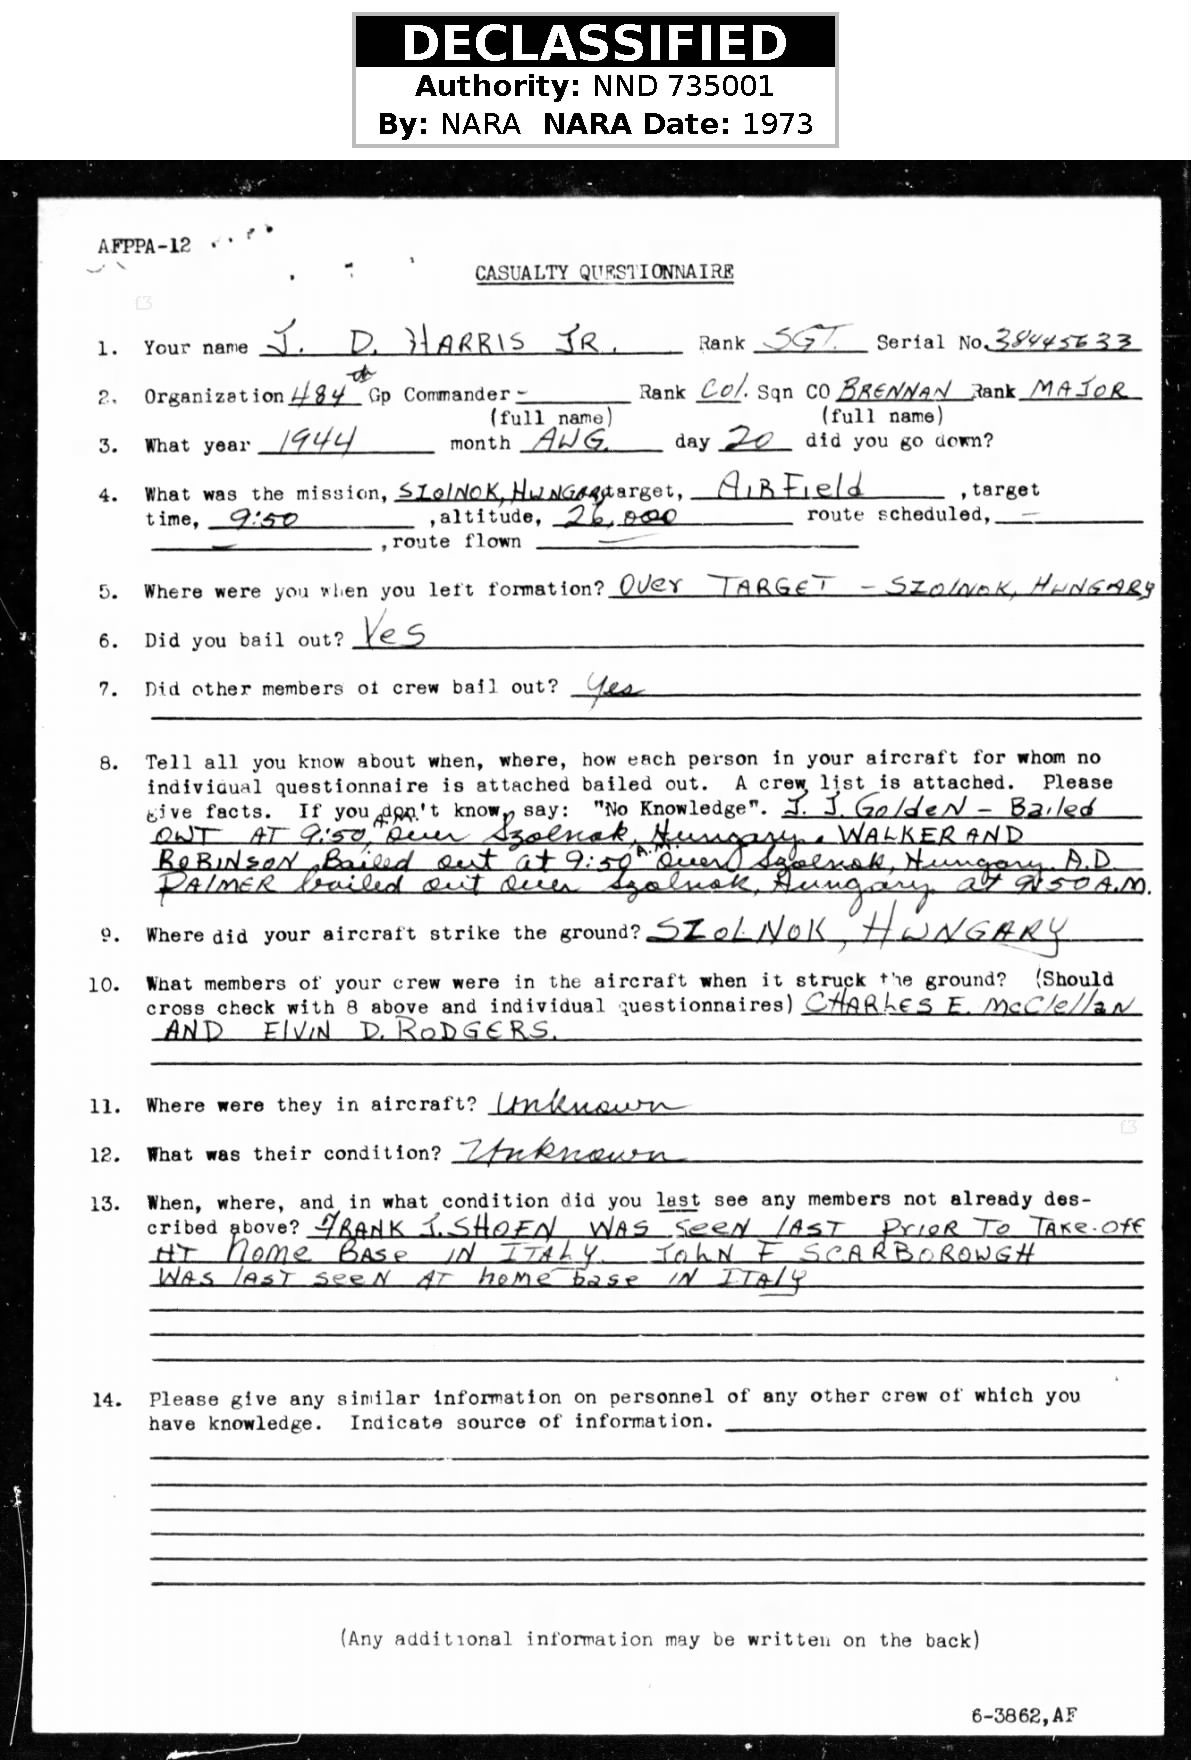 DECLASSIFIED
Authority: NND 735001
By: NARA NARA Date: 1973
AFPPA-12
CASUALTY QUESTIONNAIRE
1. Your name J. D. HARRIS JR. Rank SGT. Serial No. 38445633
2. Organization 484th Gp Commander - Rank Col. Sqn CO BRENNAN Rank MAJOR
(full name) (full name)
3. What year 1944 month AUG. day 20 did you go down?
4. What was the mission, SZolNOK, HUNGARY target, AIRField , target
time, 9:50 , altitude, 26,000 route scheduled, —
— , route flown —
5. Where were you when you left formation? OVer TARGET - SZOLNOK, HUNGARY
6. Did you bail out? Yes
7. Did other members of crew bail out? Yes
8. Tell all you know about when, where, how each person in your aircraft for whom no
individual questionnaire is attached bailed out. A crew list is attached. Please
give facts. If you don't know, say: "No Knowledge". J. J. GoldeN - Bailed
OUT AT 9:50 A.M. over Szolnok, Hungary. WALKER AND
ROBINSON Bailed out at 9:50 A.M. over Szolnok, Hungary. A.D.
PAlMER bailed out over Szolnok, Hungary at 9:50 A.M.
9. Where did your aircraft strike the ground? SZOLNOK, HUNGARY
10. What members of your crew were in the aircraft when it struck the ground? (Should
cross check with 8 above and individual questionnaires) CHARLES E. McClellaN
AND ElVIN D. RODGERS.
11. Where were they in aircraft? Unknown
12. What was their condition? Unknown
13. When, where, and in what condition did you last see any members not already des-
cribed above? FRANK J. SHOEN WAS SeeN lAST PrIOR TO TAKE-Off
AT home BASe IN ITALY. JOhN F SCARBOROUGH
WAS lAST seeN AT home base IN ITAlY
14. Please give any similar information on personnel of any other crew of which you
have knowledge. Indicate source of information.
(Any additional information may be written on the back)
6-3862,AF